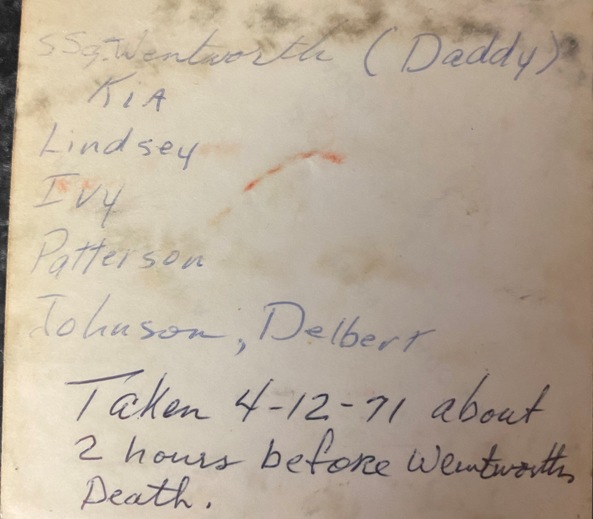 SSgt. Wentworth (Daddy)
KIA
Lindsey
Ivy
Patterson
Johnson, Delbert
Taken 4-12-71 about
2 hours before Wentworths
Death.